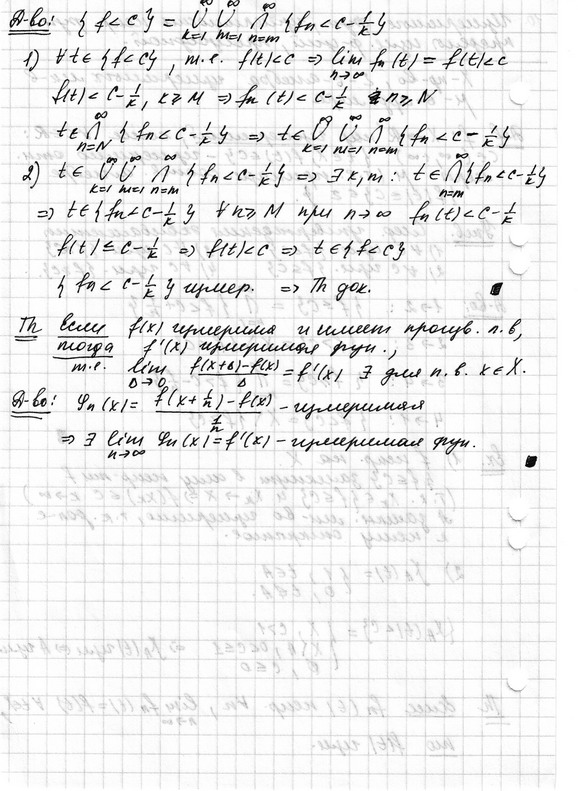 Д-во: {f<c} = ⋃_{k=1}^∞ ⋃_{m=1}^∞ ⋂_{n=m}^∞ {fn<c-1/k}
1) ∀t∈{f<c}, т.е. f(t)<c ⇒ lim_{n→∞} fn(t) = f(t)<c
f(t)<c-1/k, k≥M ⇒ fn(t)<c-1/k n≥N
t∈ ⋂_{n=N}^∞ {fn<c-1/k} ⇒ t∈ ⋃_{k=1}^∞ ⋃_{m=1}^∞ ⋂_{n=m}^∞ {fn<c-1/k}
2) t∈ ⋃_{k=1}^∞ ⋃_{m=1}^∞ ⋂_{n=m}^∞ {fn<c-1/k} ⇒ ∃k,m: t∈ ⋂_{n=m}^∞ {fn<c-1/k}
⇒ t∈{fn<c-1/k} ∀n≥M при n→∞ fn(t)<c-1/k
f(t)≤c-1/k ⇒ f(t)<c ⇒ t∈{f<c}
{fn<c-1/k} измер. ⇒ Th док.
Th Если f(x) измерима и имеет произв. п.в,
тогда f'(x) измеримая фун.,
т.е. lim_{Δ→0} (f(x+Δ)-f(x))/Δ = f'(x) ∃ для п.в. x∈X.
Д-во: φn(x) = (f(x+1/n)-f(x))/(1/n) - измеримая
⇒ ∃ lim_{n→∞} φn(x) = f'(x) - измеримая фун.